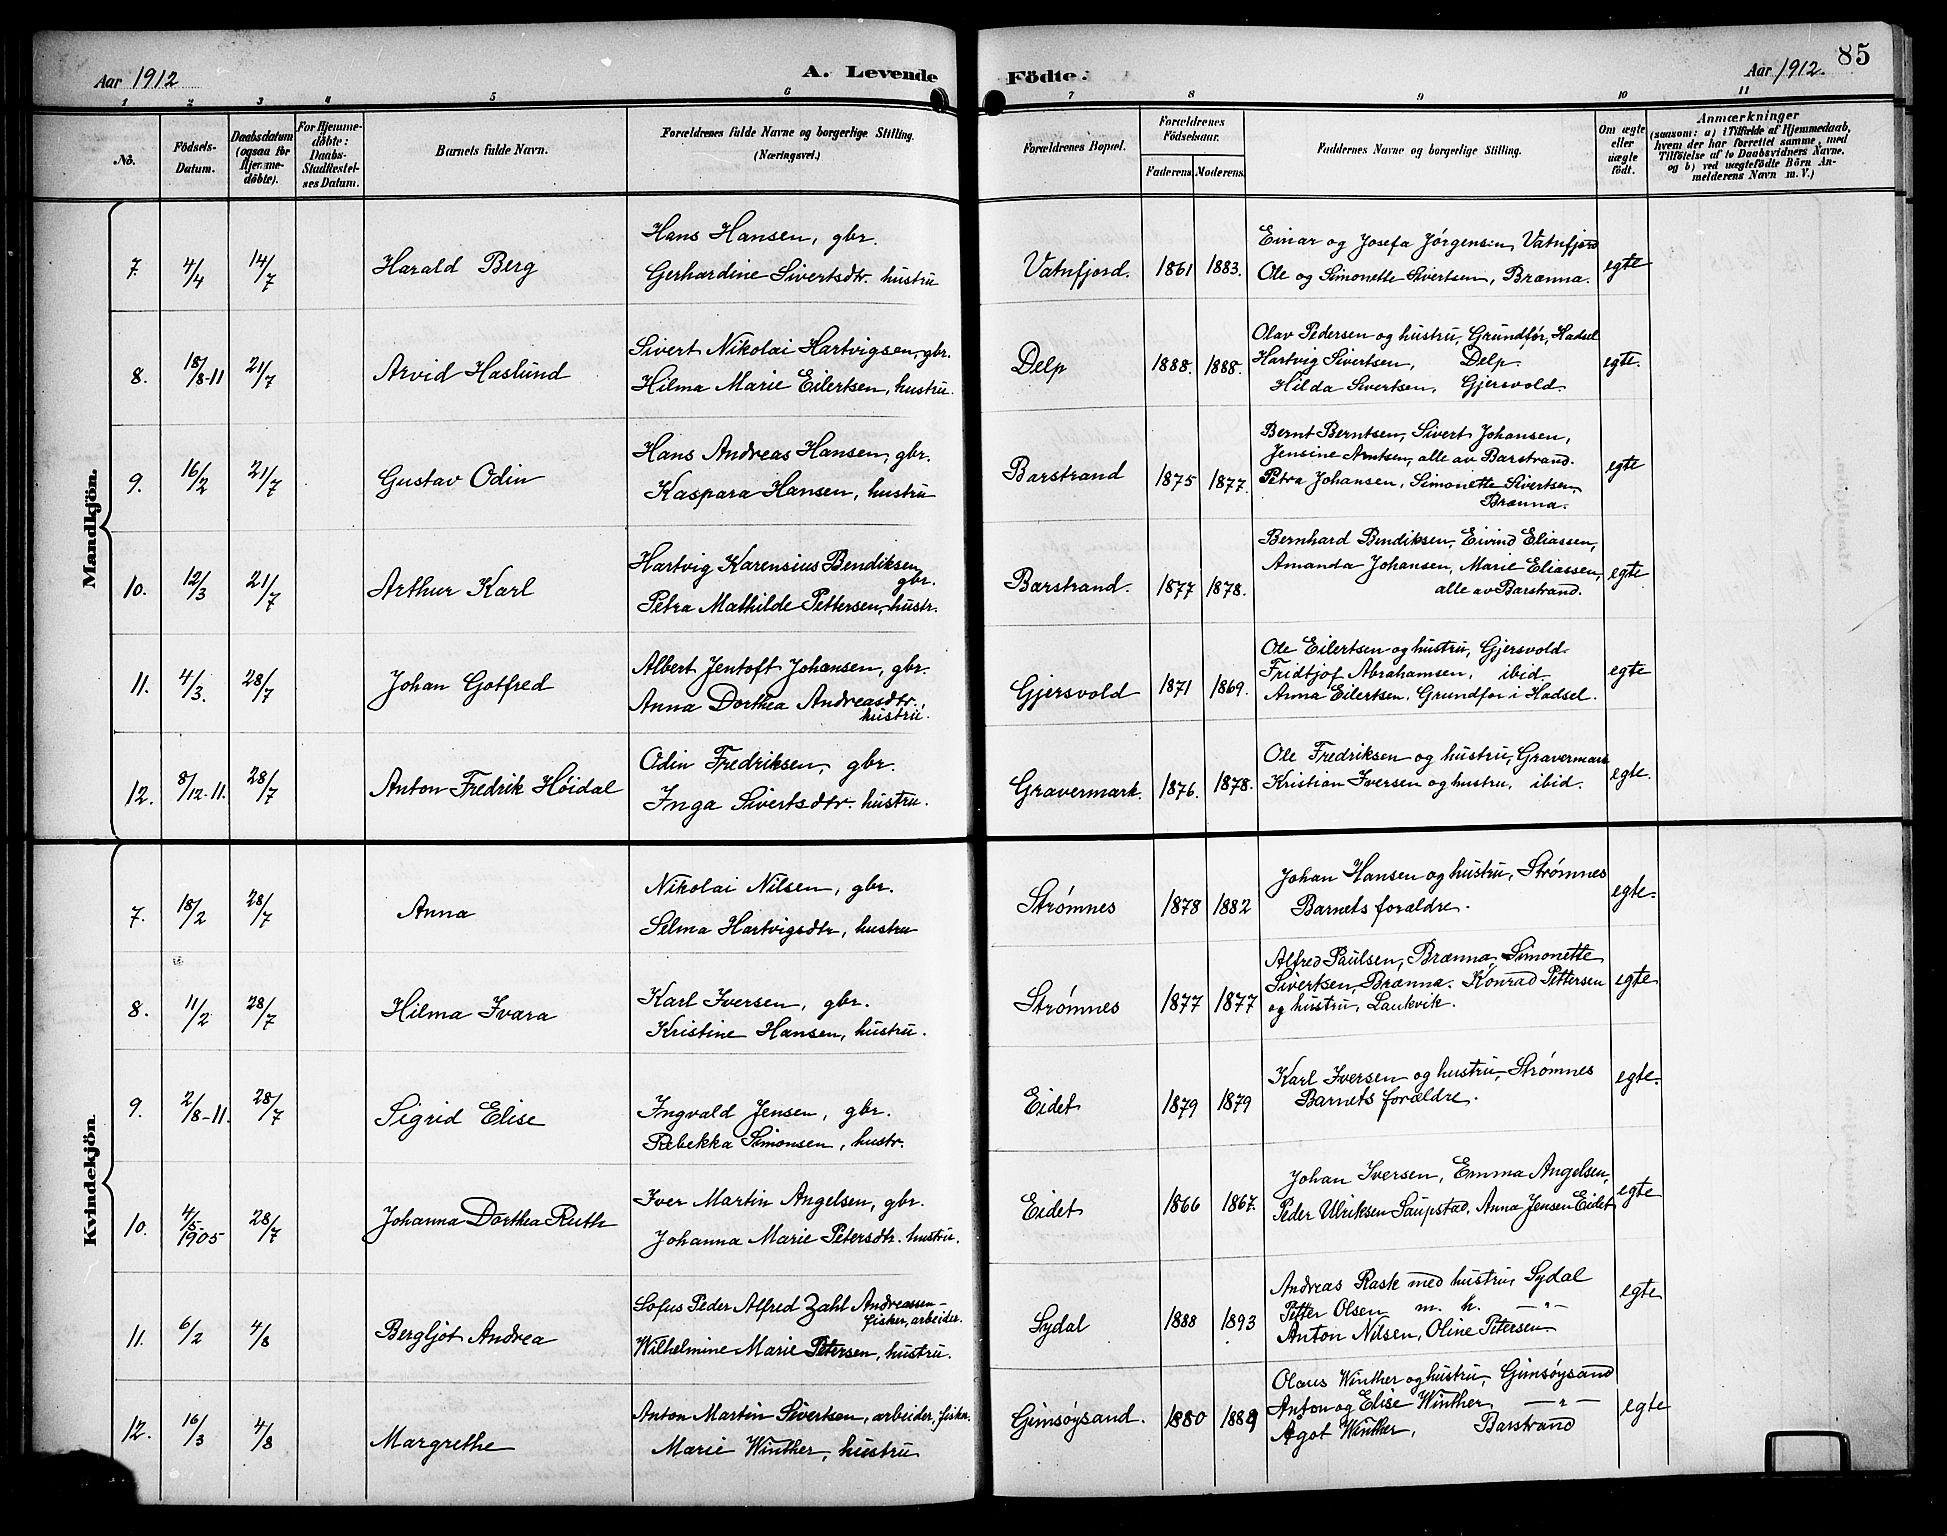 Aar 1912
A. Levende
Födte.
Aar 1912.
85
1 2 3 4 5 6 7 8 9 10 11
No.
Födsels-
Datum.
Daabsdatum
(ogsaa for
Hjemme-
döbte).
For Hjemme-
döbte:
Daabs-
Stadfæstel-
ses Datum.
Barnets fulde Navn.
Forældrenes fulde Navne og borgerlige Stilling.
(Næringsvei.)
Forældrenes Bopæl.
Forældrenes
Födselsaar.
Faderens Moderens
Faddernes Navne og borgerlige Stilling.
Om ægte
eller
uægte
födt.
Anmærkninger
(saasom: a) i Tilfælde af Hjemmedaab,
hvem der har forrettet samme, med
Tilföielse af to Daabsvidners Navne.
og b) ved uægtefödte Börn An-
melderens Navn m. V.)
Mandkjön.
7. 4/4 14/7 Harald Berg
Hans Hansen, gbr.
Gerhardine Sivertsdtr. hustru
Vatnfjord. 1861 1883.
Einar og Josefa Jørgensen, Vatnfjord
Ole og Simonette Sivertsen, Brænna.
egte
8. 18/8-11 21/7 Arvid Haslund
Sivert Nikolai Hartvigsen, gbr.
Hilma Marie Eilertsen, hustru.
Delp 1888. 1888.
Olav Pedersen og hustru, Grundfør, Hadsel
Hartvig Sivertsen, Delp
Hilda Sivertsen, Gjersvold.
egte.
9. 16/2 21/7 Gustav Odin
Hans Andreas Hansen, gbr.
Kaspara Hansen, hustru
Barstrand 1875 1877.
Bernt Berntsen, Sivert Johansen,
Jensine Arntsen, alle av Barstrand.
Petra Johansen, Simonette Sivertsen,
Brænna.
egte
10. 12/3 21/7 Arthur Karl
Hartvig Karensius Bendiksen
gbr.
Petra Mathilde Pettersen, hustr.
Barstrand. 1877 1878.
Bernhard Bendiksen, Eivind Eliassen,
Amanda Johansen, Marie Eliassen,
alle av Barstrand.
egte
11. 4/3. 28/7 Johan Gotfred
Albert Jentoft Johansen, gbr.
Anna Dorthea Andreasdtr.,
hustru.
Gjersvold 1871 1869.
Ole Eilertsen og hustru, Gjersvold.
Fridtjof Abrahamsen, ibid.
Anna Eilertsen, Grundfor i Hadsel.
egte
12. 8/12-11. 28/7 Anton Fredrik Høidal
Odin Fredriksen, gbr.
Inga Sivertsdtr. hustru.
Gravermark. 1876. 1878.
Ole Fredriksen og hustru, Gravermark
Kristian Iversen og hustru, ibid.
egte.
Kvindekjön.
7. 18/2 28/7 Anna
Nikolai Nilsen, gbr.
Selma Hartvigsdtr, hustru
Strømnes 1878 1882
Johan Hansen og hustru, Strømnes
Barnets forældre.
egte.
8. 11/2 28/7 Hilma Ivara
Karl Iversen, gbr.
Kristine Hansen, hustru.
Strømnes 1877 1877
Alfred Paulsen, Brænna, Simonette
Sivertsen, Brænna. Konrad Pettersen
og hustru, Laukvik.
egte
9. 2/8-11. 28/7 Sigrid Elise
Ingvald Jensen, gbr.
Rebekka Simonsen, hustr.
Eidet 1879 1879
Karl Iversen og hustru, Strømnes
Barnets forældre.
egte.
10. 4/5 1905 28/7 Johanna Dorthea Ruth
Iver Martin Angelsen, gbr.
Johanna Marie Petersdtr. hustru.
Eidet 1866 1867.
Johan Iversen, Emma Angelsen,
Peder Ulriksen Saupstad, Anna Jensen Eidet
egte
11. 6/2 4/8 Bergljot Andrea
Sofus Peder Alfred Zahl Andreassen-
fisker, arbeider.
Wilhelmine Marie Petersen, hustru.
Sydal 1888 1893
Andreas Rask med hustru, Sydal
Petter Olsen m. h. —"—
Anton Nilsen, Oline Petersen.
egte
12. 16/3 4/8 Margrethe
Anton Martin Sivertsen, arbeider, fisker.
Marie Winther, hustru
Gimsøysand. 1880 1889
Olaus Winther og hustru, Gimsøysand
Anton og Elise Winther, —"—
Agot Winther, Barstrand
egte